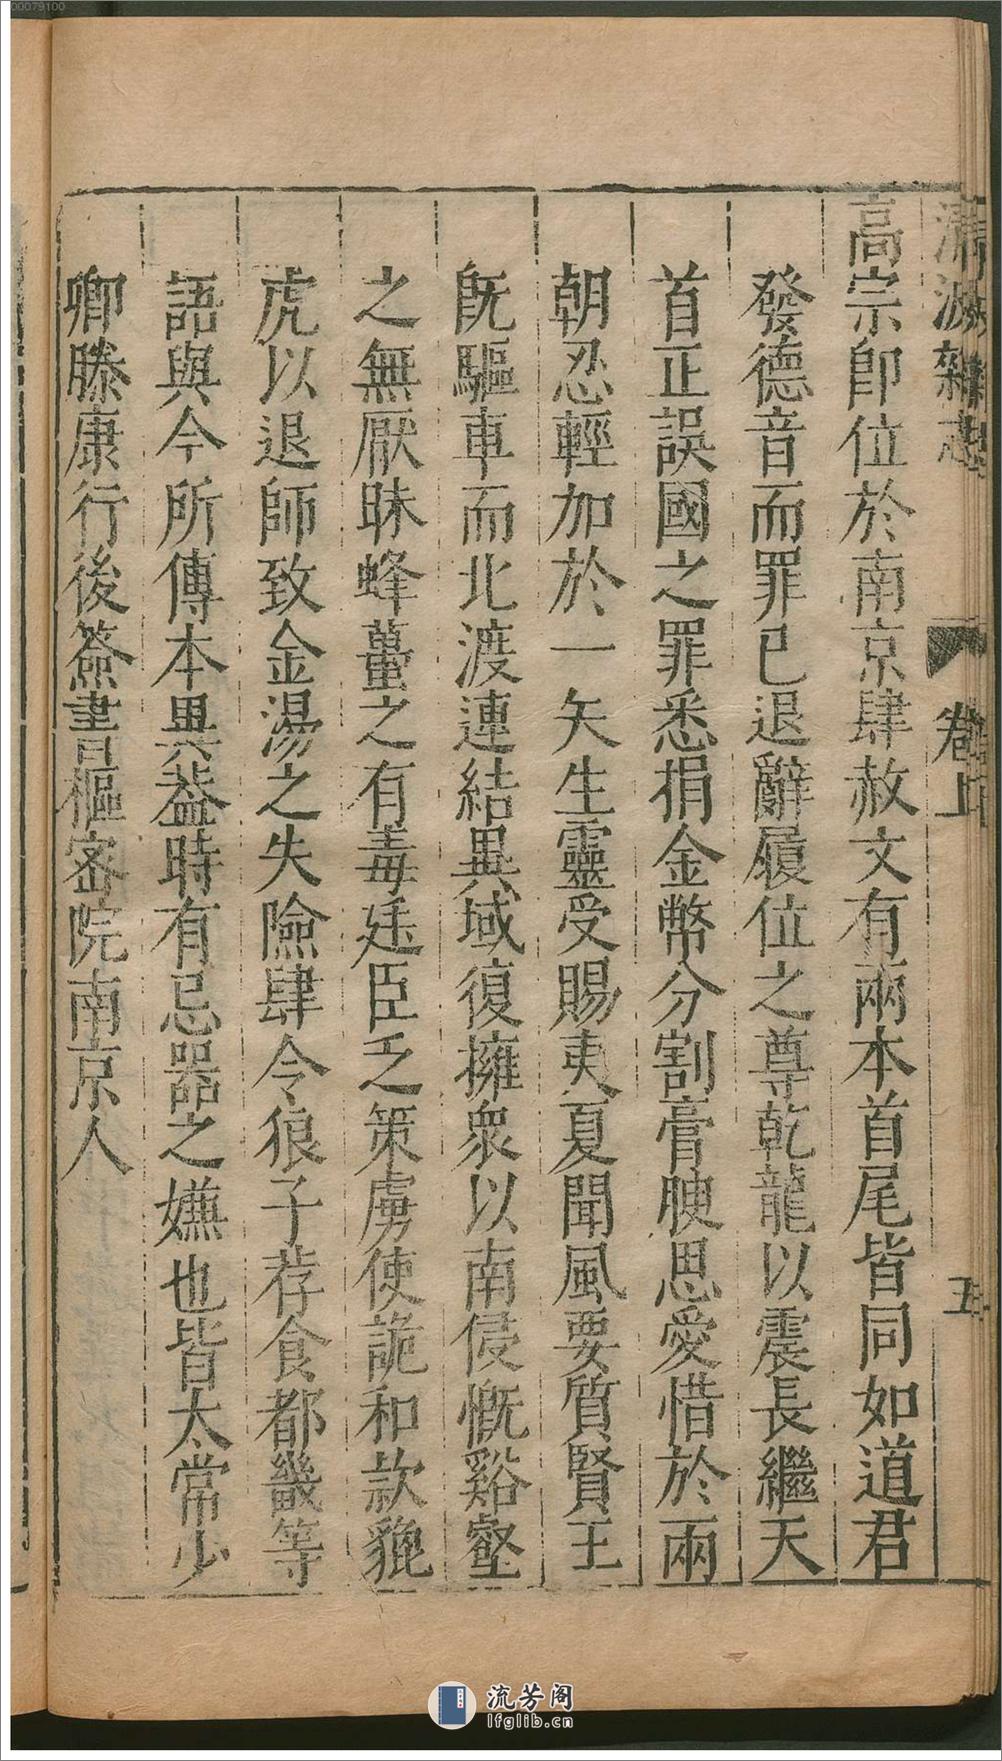 清波雜志
卷上
五
高宗卽位於南京肆赦文有兩本首尾皆同如道君
發德音而罪已退辭履位之尊乾龍以震長繼天
首正誤國之罪悉捐金幣分割膏腴思愛惜於兩
朝忍輕加於一矢生靈受賜夷夏聞風要質賢王
旣驅車而北渡連結異域復擁衆以南侵慨谿壑
之無厭昧蜂蠆之有毒廷臣乏策虜使詭和款貔
虎以退師致金湯之失險肆令狼子荐食都畿等
語與今所傳本異葢時有忌器之嫌也皆太常少
卿滕康行後簽書樞密院南京人
00079100
流芳阁
lfglib.cn